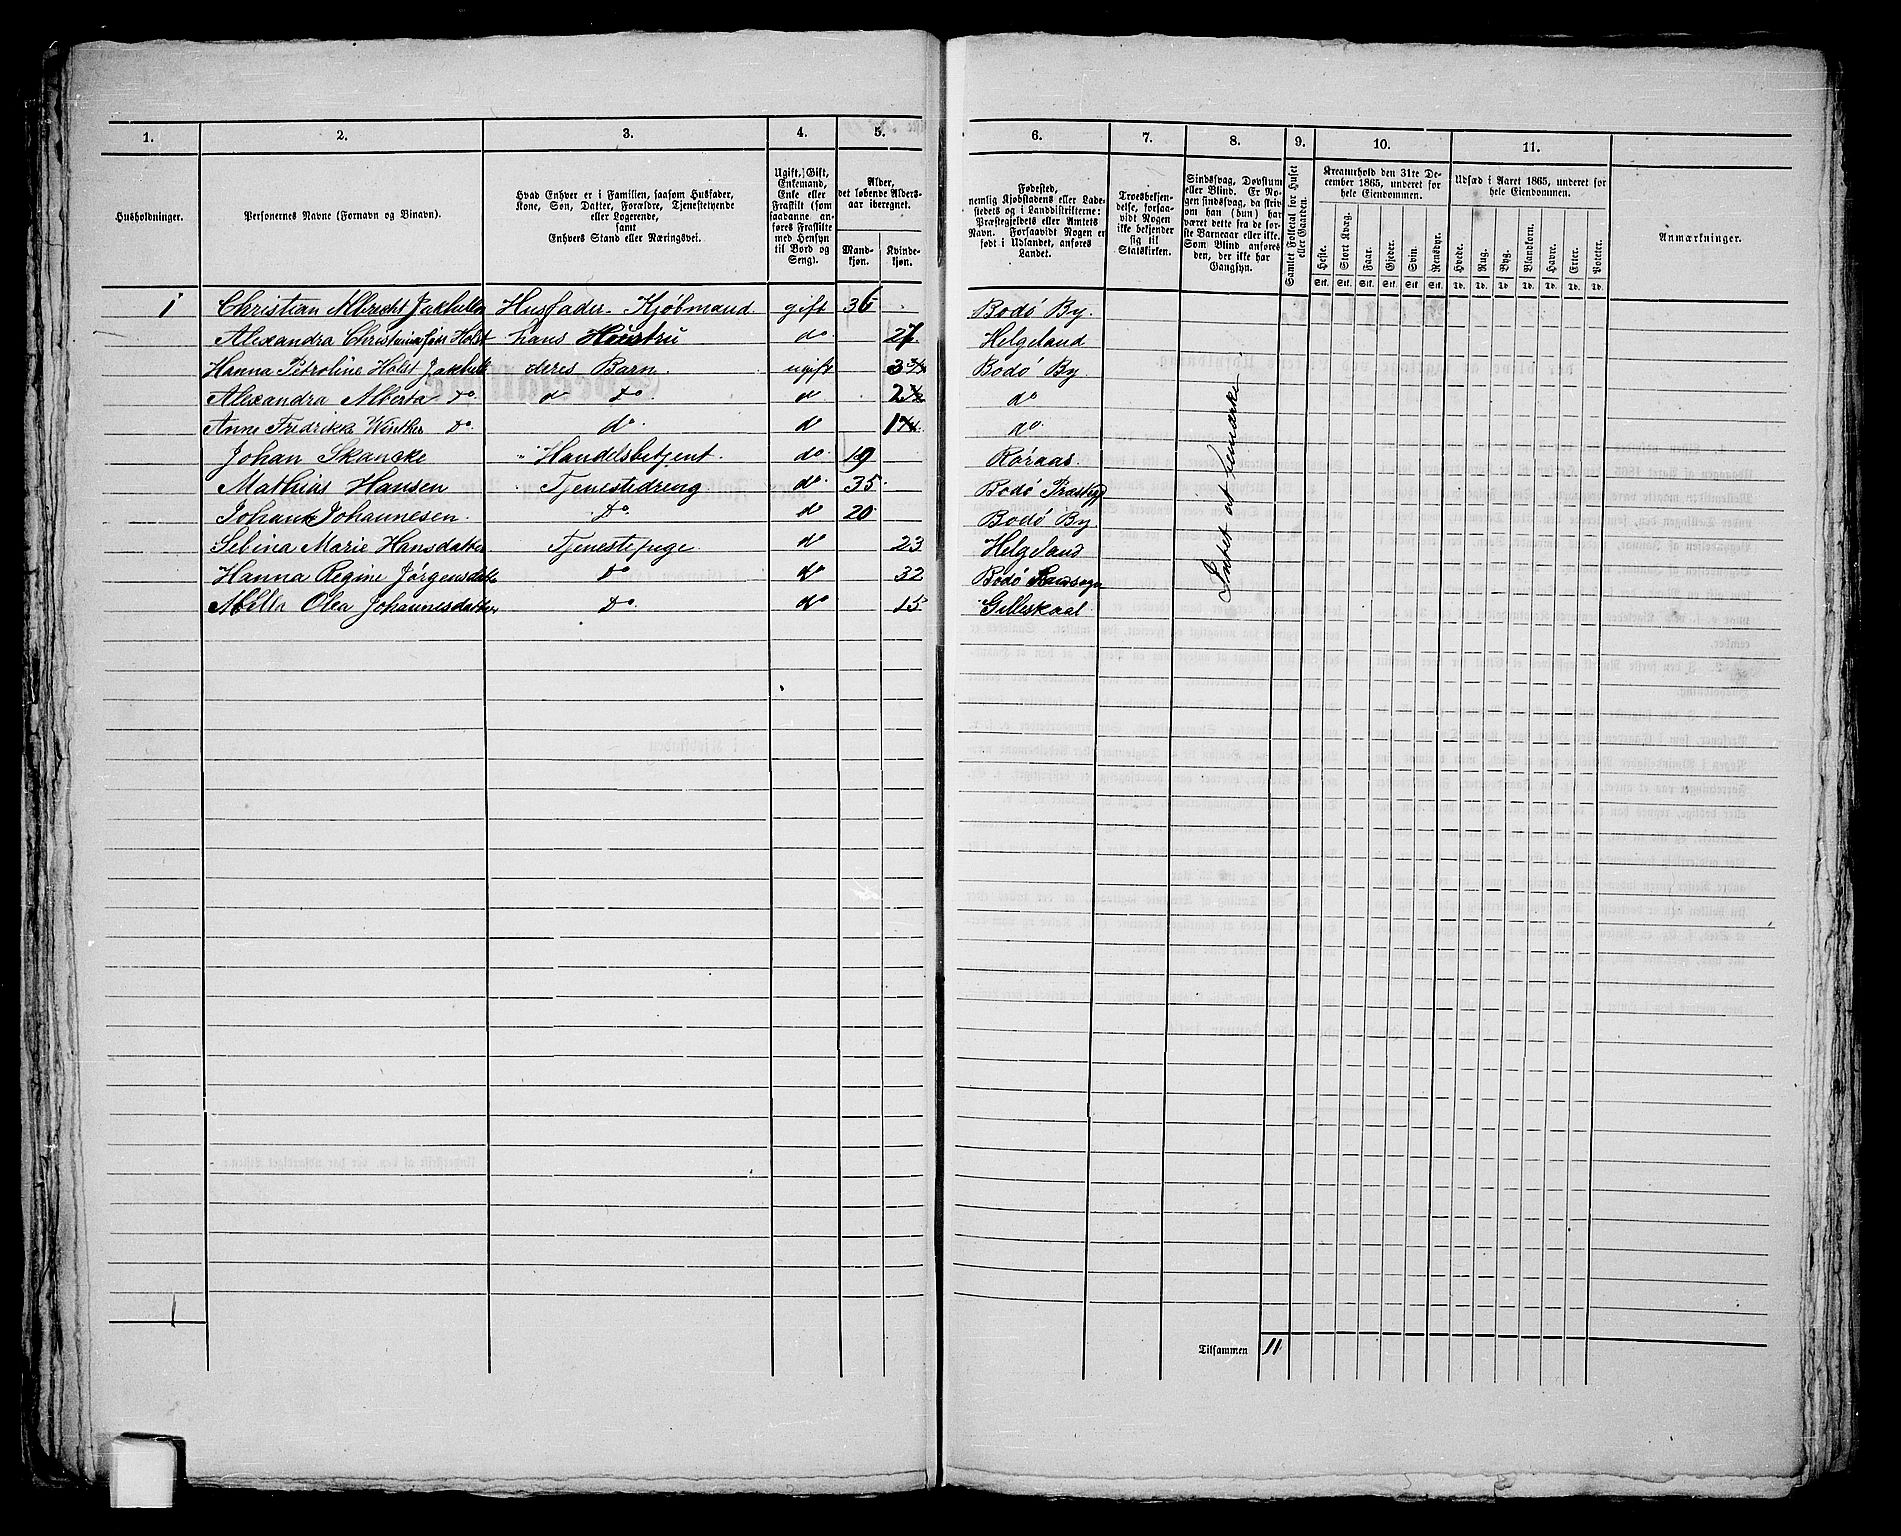 1. 2. 3. 4. 5. 6. 7. 8. 9. 10. 11.
Husholdninger.
Personernes Navne (Fornavn og Binavn).
Hvad Enhver er i Familien, saasom Husfader, Kone, Søn, Datter, Forældre, Tjenestetyende eller Logerende, samt Enhvers Stand eller Næringsvei.
Ugift, Gift, Enkemand, Enke eller Fraskilt (som saadanne anføres Fraskilte med Hensyn til Bord og Seng).
Alder, det løbende Alders-aar iberegnet.
Mand-kjøn. Kvinde-kjøn.
Fødested, nemlig Kjøbstadens eller Ladestedets og i Landdistrikterne: Præstegjeldets eller Amtets Navn. Forsaavidt Nogen er født i Udlandet, anføres Landet.
Troesbekjendelse, forsaavidt Nogen ikke bekjender sig til Statskirken.
Sindssvag, Døvstum eller Blind. Er Nogen sindssvag, da skrives om han (hun) har været dette fra de første Barneaar eller ikke. Som Blind anføres den, der ikke har Gangsyn.
Samlet Folketal for Huset eller Gaarden.
Kreaturhold den 31te December 1865, underet for hele Eiendommen.
Heste. Stort Kvæg. Faar. Gjeder. Svin. Rensdyr.
Stk. Stk. Stk. Stk. Stk. Stk.
Udsæd i Aaret 1865, underet for hele Eiendommen.
Hvede. Rug. Byg. Blandkorn. Havre. Erter. Poteter.
Td. Td. Td. Td. Td. Td. Td.
Anmærkninger.
1 Christian Albrecht Jakhelln Husfader. Kjøbmand gift 36 Bodö By.
Alexandra Christina föd Holst hans Hustru do 27. Helgeland
Hanna Petroline Holst Jakhelln deres Barn. ugift Bodö By
Alexandra Alberta do. do do do do
Anne Fredrikke Winther do. do. do do.
Johan Skancke Handelsbetjent. do. 19 Röraas.
Mathias Hansen Tjenestedreng do. 35. Bodö Præstegj
Johan Johannesen. Do. do 20 Bodö By
Sebina Marie Hansdatter Tjenestepige do 23 Helgeland
Hanna Regine Jørgensdatter Do do 32 Bodö Landsogn
Olea Johannesdatter Do. do 15 Gilleskaal
Intet at bemærke
1
Tilsammen 11